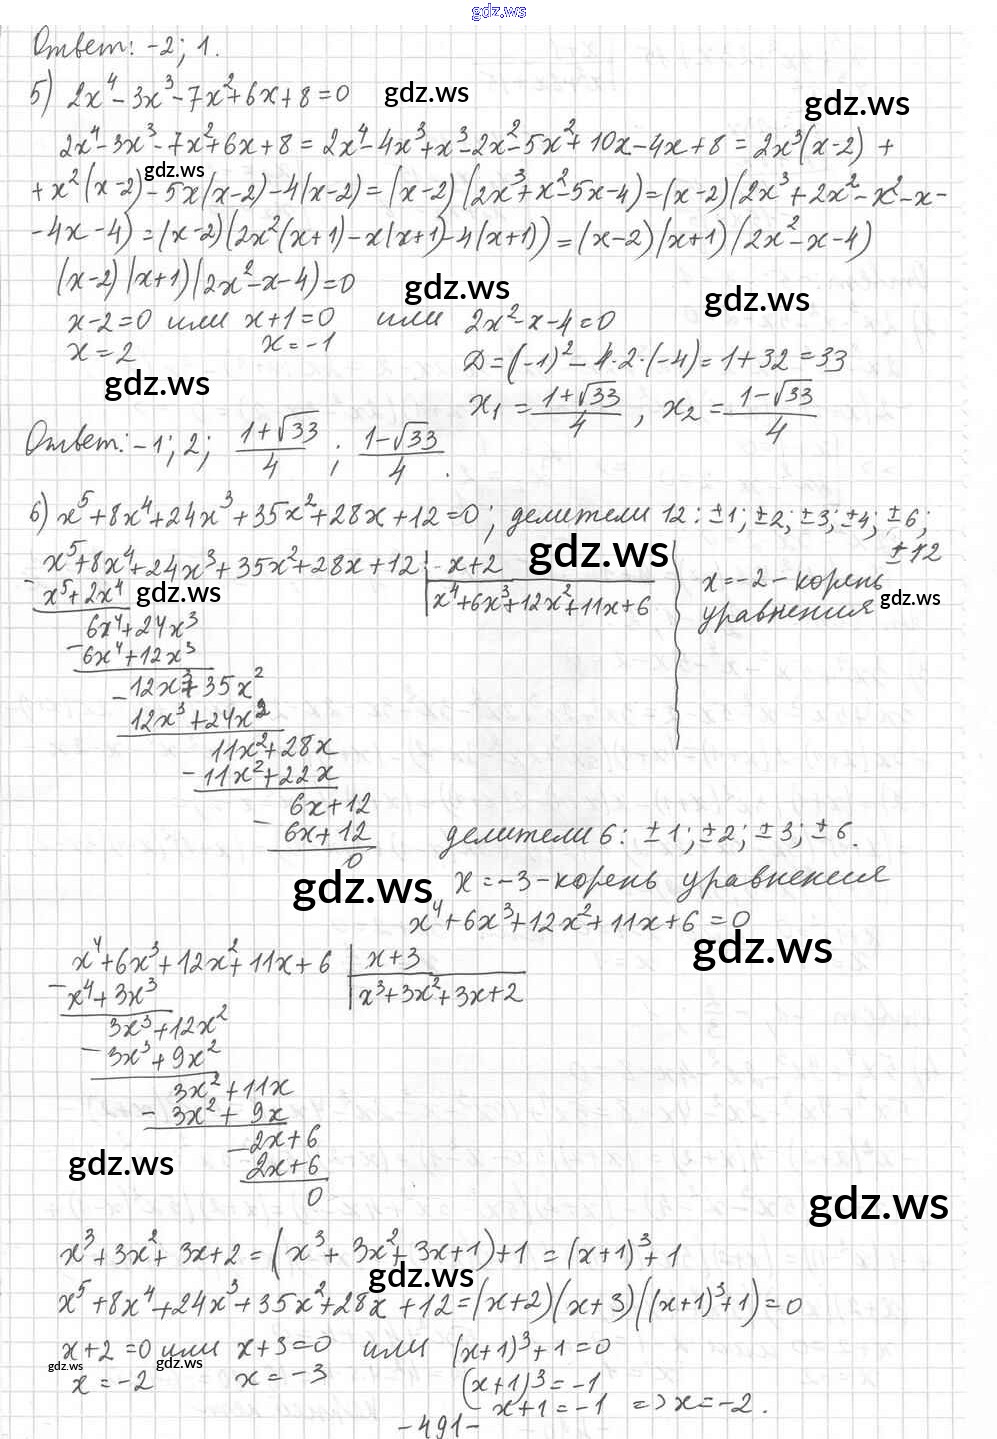 gdz.ws
Ответ: -2; 1.
5) 2x⁴-3x³-7x²+6x+8=0
gdz.ws
gdz.ws
2x⁴-3x³-7x²+6x+8=2x⁴-4x³+x³-2x²-5x²+10x-4x+8=2x³(x-2)+
gdz.ws
+x²(x-2)-5x(x-2)-4(x-2)=(x-2)(2x³+x²-5x-4)=(x-2)(2x³+2x²-x²-x-
-4x-4)=(x-2)(2x²(x+1)-x(x+1)-4(x+1))=(x-2)(x+1)(2x²-x-4)
(x-2)(x+1)(2x²-x-4)=0
gdz.ws
gdz.ws
x-2=0 или x+1=0 или 2x²-x-4=0
x=2 x=-1 D=(-1)²-4·2·(-4)=1+32=33
gdz.ws
x₁=(1+√33)/4, x₂=(1-√33)/4
Ответ: -1; 2; (1+√33)/4; (1-√33)/4.
6) x⁵+8x⁴+24x³+35x²+28x+12=0; делители 12: ±1; ±2; ±3; ±4; ±6;
±12
gdz.ws
x⁵+8x⁴+24x³+35x²+28x+12 | x+2
x=-2 - корень
- x⁵+2x⁴
gdz.ws
x⁴+6x³+12x²+11x+6
уравнения
gdz.ws
6x⁴+24x³
- 6x⁴+12x³
12x³+35x²
- 12x³+24x²
11x²+28x
- 11x²+22x
6x+12
- 6x+12
0
делители 6: ±1; ±2; ±3; ±6.
gdz.ws
x=-3-корень уравнения
x⁴+6x³+12x²+11x+6=0
gdz.ws
x⁴+6x³+12x²+11x+6 | x+3
- x⁴+3x³
x³+3x²+3x+2
3x³+12x²
- 3x³+9x²
3x²+11x
- 3x²+9x
2x+6
- 2x+6
0
gdz.ws
gdz.ws
x³+3x²+3x+2=(x³+3x²+3x+1)+1=(x+1)³+1
gdz.ws
x⁵+8x⁴+24x³+35x²+28x+12=(x+2)(x+3)((x+1)³+1)=0
x+2=0 или x+3=0 или (x+1)³+1=0
gdz.ws
gdz.ws
x=-2 x=-3 (x+1)³=-1
x+1=-1 => x=-2.
-491-